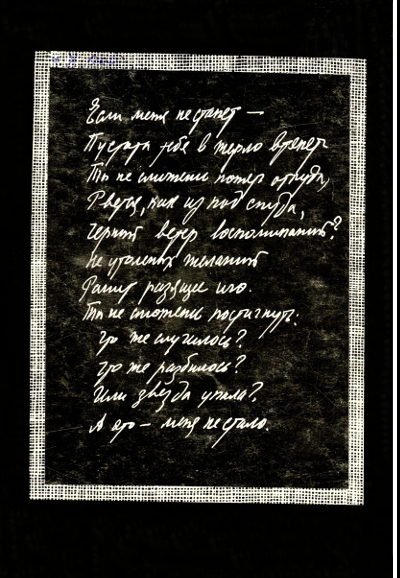 Если меня не станет —
Пустота тебе в
Ты не сможешь понять откуда,
Рвется, как из под спуда,
Черный ветер воспоминаний?
Не утоленных желаний
разящее иго.
Ты не сможешь постигнуть:
Что же случилось?
Что же разбилось?
Или звезда упала?
А это — меня не стало.